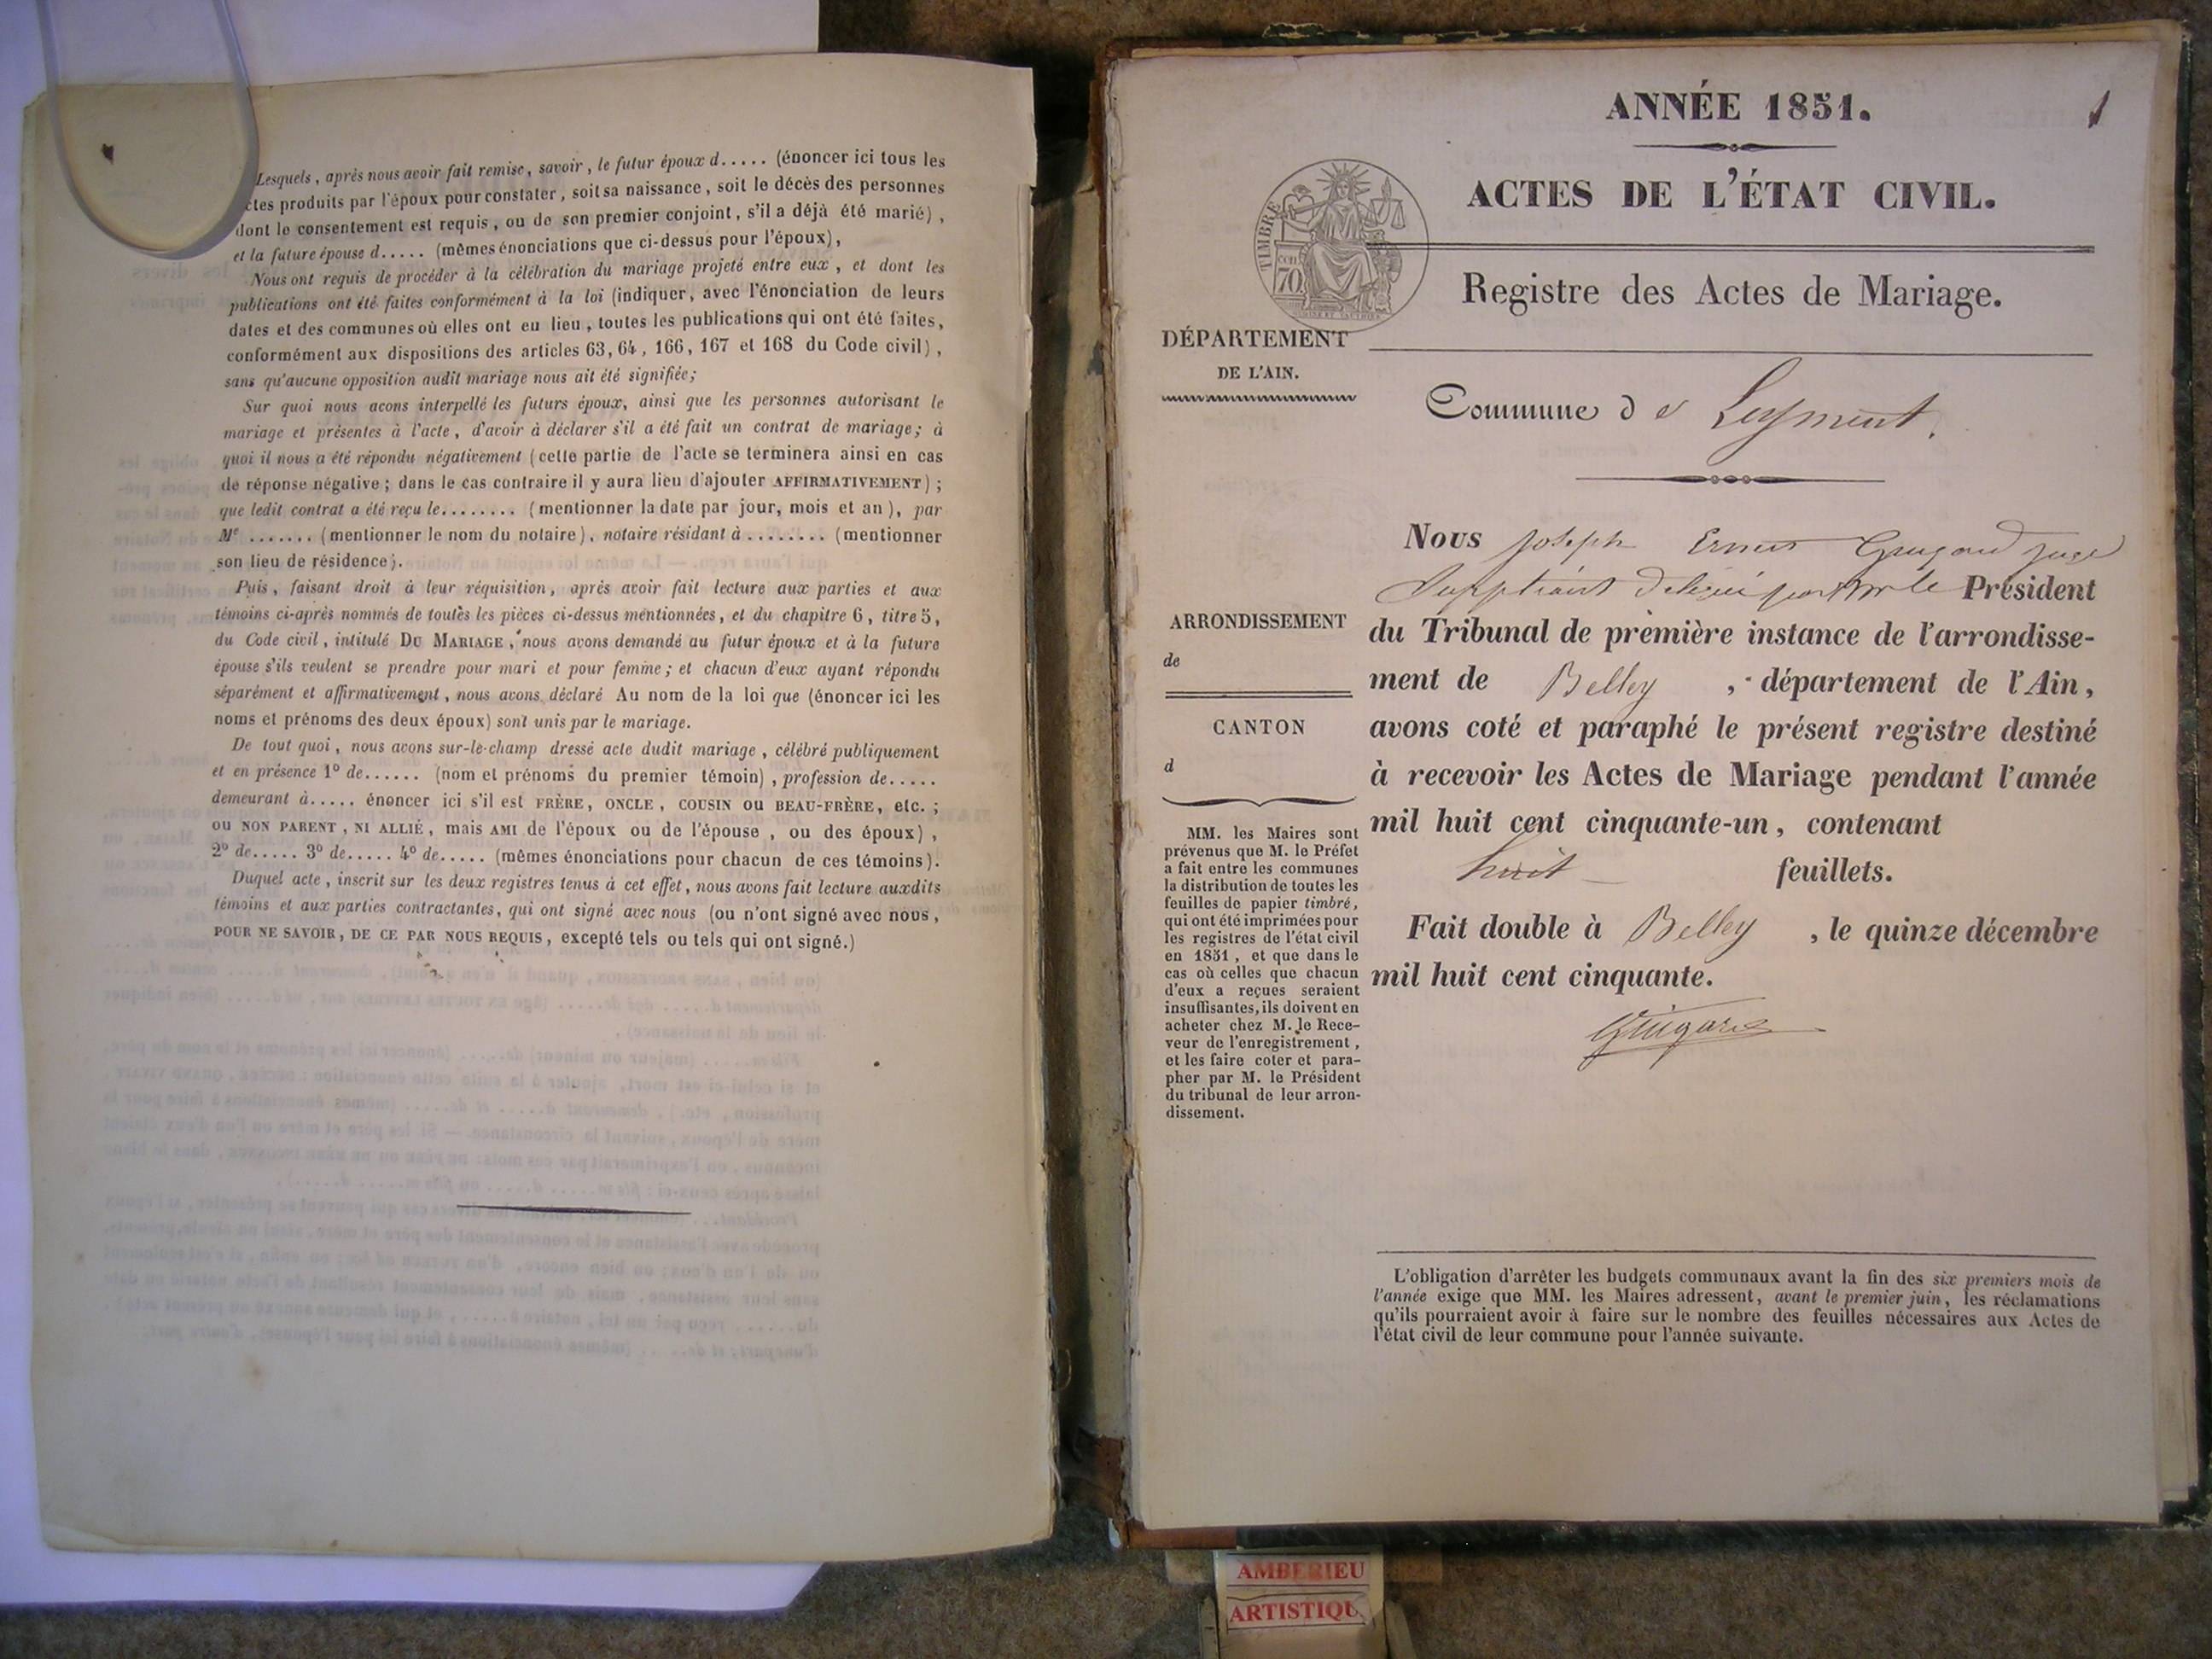 Lesquels, après nous avoir fait remise, savoir, le futur époux d..... (énoncer ici tous les
ctes produits par l'époux pour constater, soit sa naissance, soit le décès des personnes
dont le consentement est requis, ou de son premier conjoint, s'il a déjà été marié),
et la future épouse d..... (mêmes énonciations que ci-dessus pour l'époux),
Nous ont requis de procéder à la célébration du mariage projeté entre eux, et dont les
publications ont été faites conformément à la loi (indiquer, avec l'énonciation de leurs
dates et des communes où elles ont eu lieu, toutes les publications qui ont été faites,
conformément aux dispositions des articles 63, 64, 166, 167 et 168 du Code civil),
sans qu'aucune opposition audit mariage nous ait été signifiée;
Sur quoi nous avons interpellé les futurs époux, ainsi que les personnes autorisant le
mariage et présentes à l'acte, d'avoir à déclarer s'il a été fait un contrat de mariage; à
quoi il nous a été répondu négativement (cette partie de l'acte se terminera ainsi en cas
de réponse négative; dans le cas contraire il y aura lieu d'ajouter AFFIRMATIVEMENT);
que ledit contrat a été reçu le........ (mentionner la date par jour, mois et an), par
Me ....... (mentionner le nom du notaire), notaire résidant à ........ (mentionner
son lieu de résidence).
Puis, faisant droit à leur réquisition, après avoir fait lecture aux parties et aux
témoins ci-après nommés de toutes les pièces ci-dessus mentionnées, et du chapitre 6, titre 5,
du Code civil, intitulé DU MARIAGE, nous avons demandé au futur époux et à la future
épouse s'ils veulent se prendre pour mari et pour femme; et chacun d'eux ayant répondu
séparément et affirmativement, nous avons déclaré Au nom de la loi que (énoncer ici les
noms et prénoms des deux époux) sont unis par le mariage.
De tout quoi, nous avons sur-le-champ dressé acte dudit mariage, célébré publiquement
et en présence 1º de...... (nom et prénoms du premier témoin), profession de.....
demeurant à..... énoncer ici s'il est FRÈRE, ONCLE, COUSIN ou BEAU-FRÈRE, etc.;
ou NON PARENT, NI ALLIÉ, mais AMI de l'époux ou de l'épouse, ou des époux),
2º de..... 3º de..... 4º de..... (mêmes énonciations pour chacun de ces témoins).
Duquel acte, inscrit sur les deux registres tenus à cet effet, nous avons fait lecture auxdits
témoins et aux parties contractantes, qui ont signé avec nous (ou n'ont signé avec nous,
POUR NE SAVOIR, DE CE PAR NOUS REQUIS, excepté tels ou tels qui ont signé.)
ANNÉE 1851.
1
ACTES DE L'ÉTAT CIVIL.
TIMBRE
CEN
70
Registre des Actes de Mariage.
DÉPARTEMENT
DE L'AIN.
Commune de Leyment.
ARRONDISSEMENT
de
CANTON
d
MM. les Maires sont
prévenus que M. le Préfet
a fait entre les communes
la distribution de toutes les
feuilles de papier timbré,
qui ont été imprimées pour
les registres de l'état civil
en 1851, et que dans le
cas où celles que chacun
d'eux a reçues seraient
insuffisantes, ils doivent en
acheter chez M. le Rece-
veur de l'enregistrement,
et les faire coter et para-
pher par M. le Président
du tribunal de leur arron-
dissement.
Nous Joseph Ernest Guigard juge
Suppléant délégué par Mr le Président
du Tribunal de première instance de l'arrondisse-
ment de Belley, département de l'Ain,
avons coté et paraphé le présent registre destiné
à recevoir les Actes de Mariage pendant l'année
mil huit cent cinquante-un, contenant
huit feuillets.
Fait double à Belley, le quinze décembre
mil huit cent cinquante.
Guigard
L'obligation d'arrêter les budgets communaux avant la fin des six premiers mois de
l'année exige que MM. les Maires adressent, avant le premier juin, les réclamations
qu'ils pourraient avoir à faire sur le nombre des feuilles nécessaires aux Actes de
l'état civil de leur commune pour l'année suivante.
AMBERIEU
ARTISTIQU